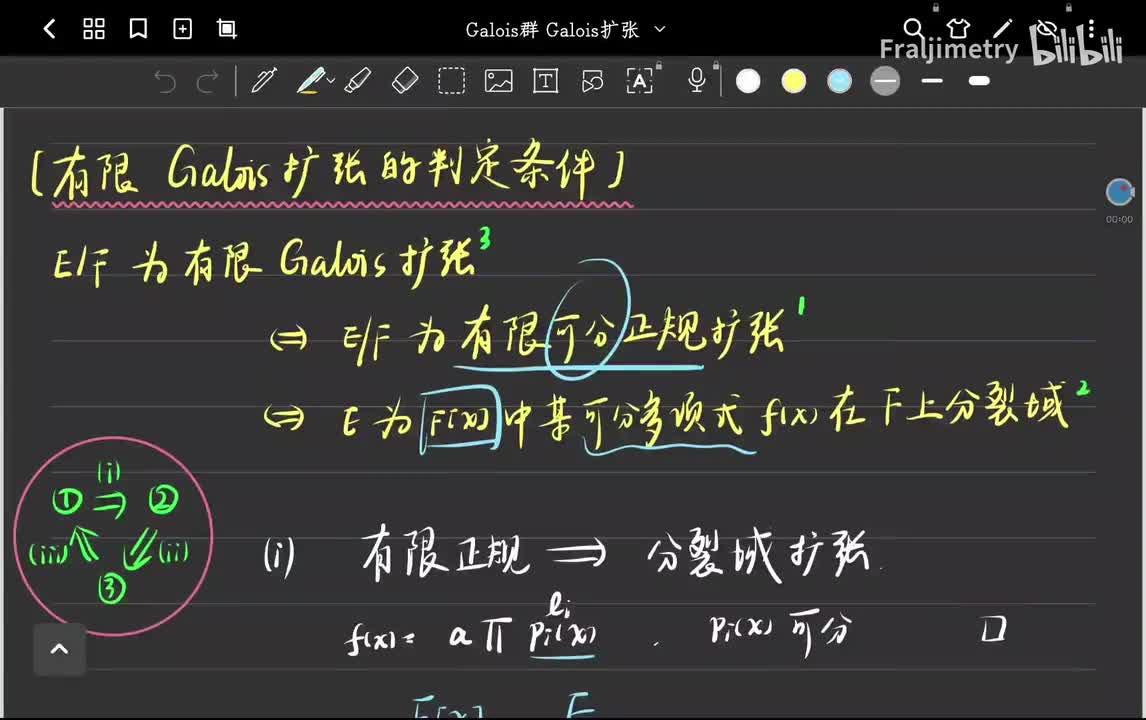 Galois群 Galois扩张
Fraljimetry bilibili
[有限 Galois扩张的判定条件]
00:00
E/F 为有限 Galois扩张³
⇔ E/F 为有限可分正规扩张¹
⇔ E 为 F[x] 中某可分多项式 f(x) 在 F上分裂域²
(i)
① ⇒ ②
(iii) (ii)
③
(i) 有限正规 ⟹ 分裂域扩张.
f(x) = a ∏ pᵢ(x)^{eᵢ} . pᵢ(x) 可分 □
F[x] F